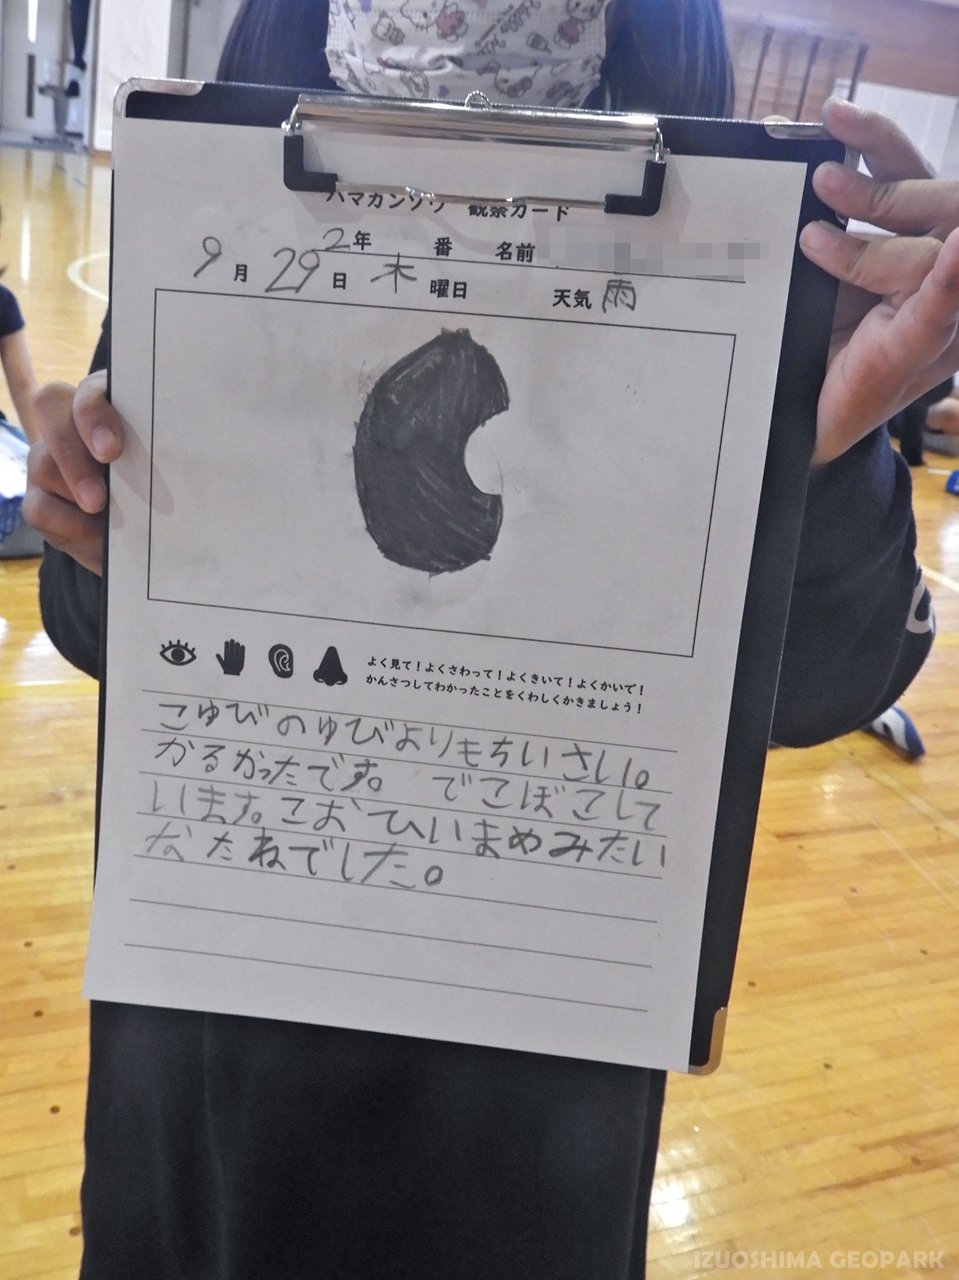 ハマカンゾウ 観察カード
2年 番 名前
9月29日 木曜日 天気 雨
よく見て!よくさわって!よくきいて!よくかいで!
かんさつしてわかったことをくわしくかきましょう!
こゆびのゆびよりもちいさい。
かるかったです。 でこぼこして
います。こおひいまめみたい
なたねでした。
IZUOSHIMA GEOPARK